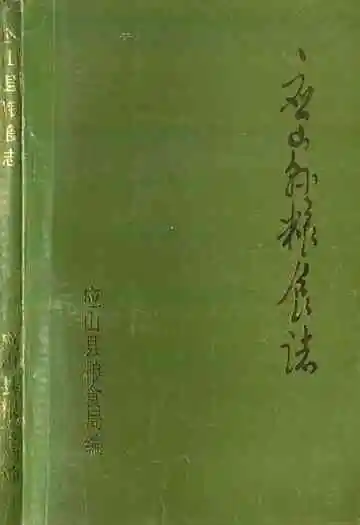 应山县粮食誌
应山县粮食局编
应山县粮食志
应山县粮食局编